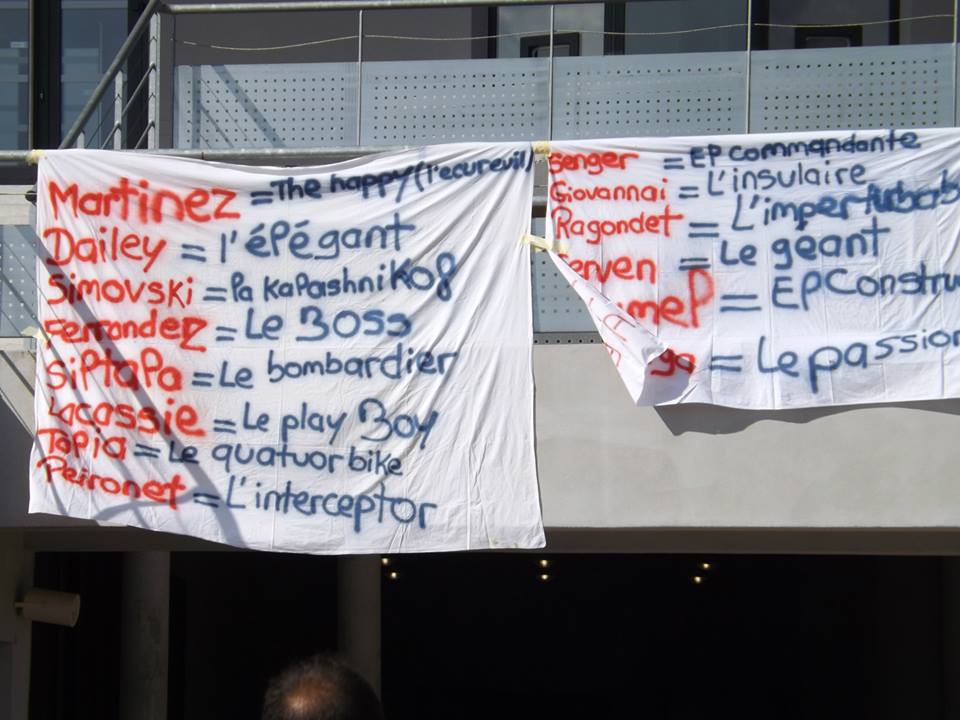 Martinez = The happy (l'ecureuil)
Dailey = l'éPégant
Simovski = Pa KaPashniKo8
Fernandez = Le Boss
SiPtaPa = Le bombardier
Lacassie = Le play Boy
Tapia = Le quatuor bike
Peironet = L'interceptor
Senger = EP commandante
Giovannai = L'insulaire
Ragondet = L'imperturbab
erven = Le géant
meP = EPConstru
ga = Le passion